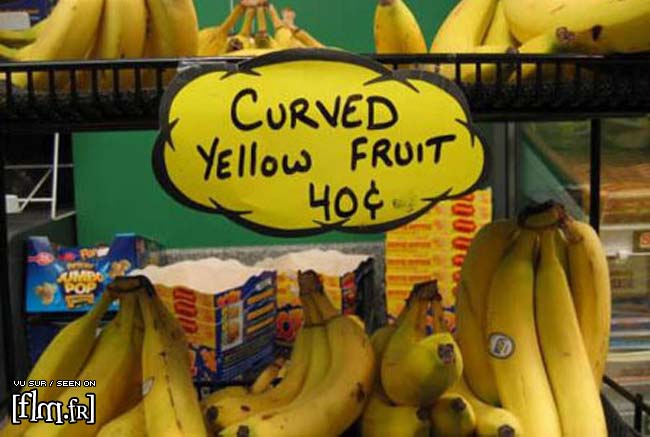 CURVED
Yellow FRUIT
40¢
JUMBO
POP
VU SUR / SEEN ON
[fLM.FR]